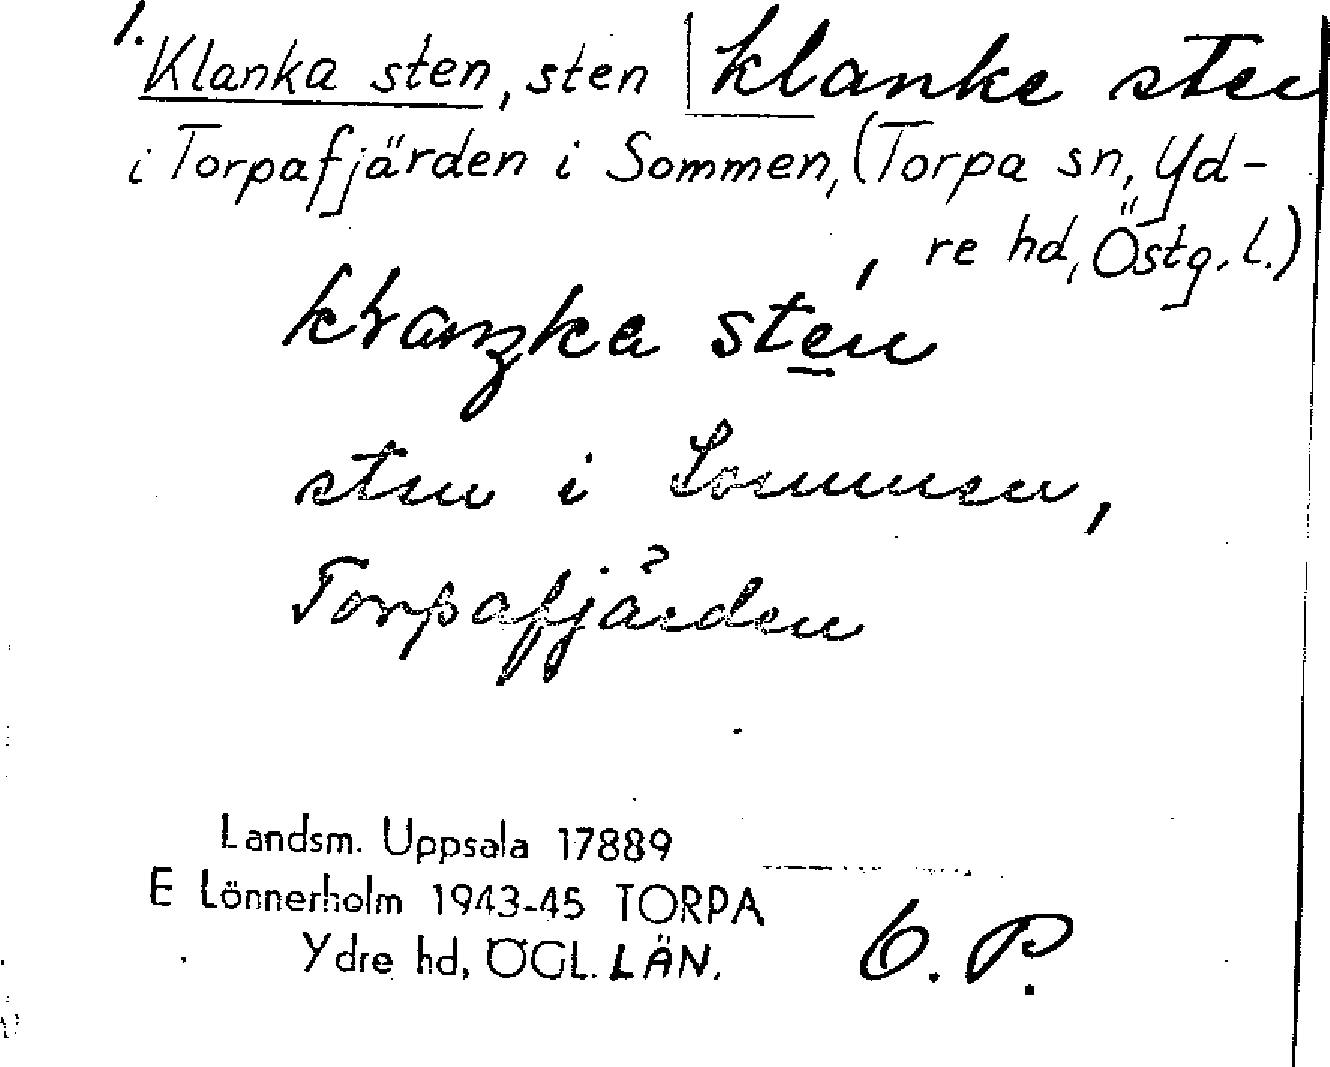 1. Klanka sten, sten klanke sten
i Torpafjärden i Sommen, (Torpa sn, Yd-
re hd, Östg. l.)
sten
sten i Sommen,
Torpafjärden
Landsm. Uppsala 17889
E Lönnerholm 1943-45 TORPA
Ydre hd, ÖGL. LÄN.
O. P.